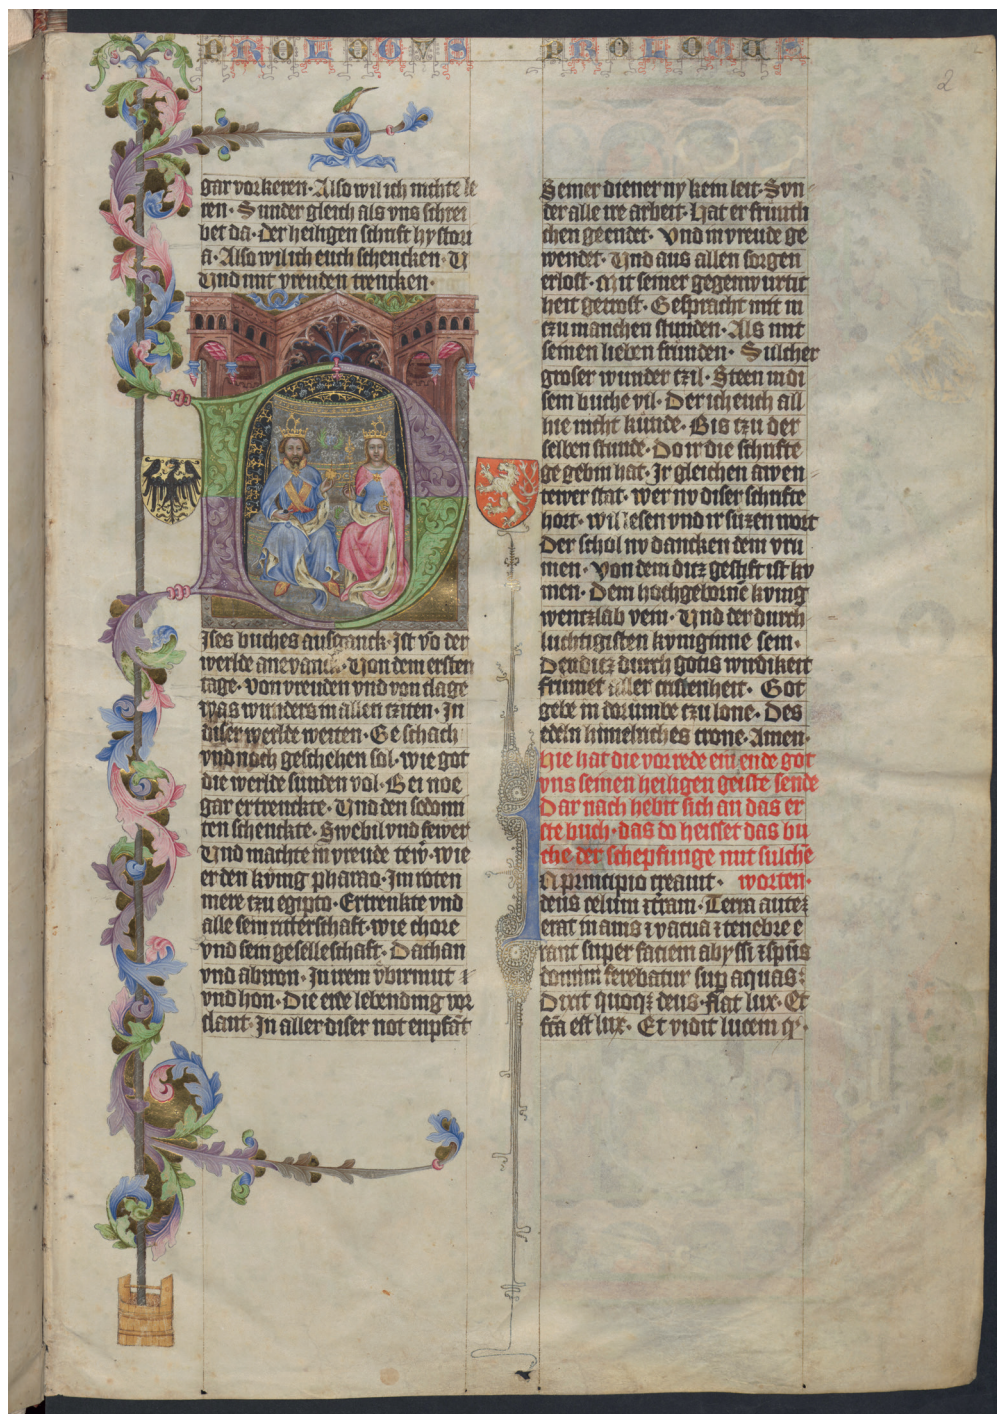 PROLOGVS PROLOGVS
2
gar vorkeren· Also wil ich nichte le
ren· Sunder gleich als vns schrei
bet da· Der heiligen schrift hystori
a· Also wil ich euch schencken· V
Vnd mit vreuden trencken·
D
Ises buches ausganck· Ist võ der
werlde anevanck· Von dem ersten
tage· Von vreuden vnd von clage
was wunders in allen cziten· In
diser werlde weiten· Geschach
vnd noch geschehen sol· wie got
die werlde sunden vol· Bei noe
gar ertrenckte· Vnd den sodomi
ten schenckte· Swebil vnd fewer
Vnd machte in vreude tew̃· wie
er den kvnig pharao· Im roten
mere czu egipto· Ertrenkte vnd
alle sein ritterschaft· wie chore
vnd sein geselleschaft· Dathan
vnd abiron· In irem vbirmut
vnd hon· Die erde lebending vor
slant· In aller diser not enpfãt
Seiner diener ny kein leit· Svn
der alle ire arbeit· Hat er fruntli
chen geendet· Vnd in vreude ge
wendet· Vnd aus allen sorgen
erlost· Mit seiner gegenwurtic
heit getrost· Gespracht mit in
czu manchen stunden· Als mit
seinen lieben frunden· Sulcher
groser wunder czil· Steen in di
sem buche vil· Der ich euch all
hie nicht kunde· Bis czu der
selben stunde· Do ir die schrifte
gegebin hat· Ir gleichen awen
tewer stat· wer nv diser schrifte
hort· wil lesen vnd ir suzen wort
Der schol nv dancken dem vru
men· Von dem ditz gestift ist kv
men· Dem hochgeborne kvnig
wentzlab vein· Vnd der durch
luchtigisten kvniginne sein·
Den ditz durch gotis wirdikeit
frumet aller cristenheit· Got
gebe in dorumbe czu lone· Des
edeln himelriches crone· Amen·
Hie hat die vorrede ein ende got
vns seinen heiligen geiste sende
Dar nach hebit sich an das er
ste buch· das do heisset das bu
che der schepfunge mit sulchẽ
worten·
IN principio creauit·
deus celum ⁊ terram· Terra autẽ
erat inanis ⁊ vacua ⁊ tenebre e
rant super faciem abyssi ⁊ spũs
domini ferebatur sup aquas:
Dixit quoqꝫ deus· fiat lux· Et
fc̃a est lux· Et vidit lucem qͥ